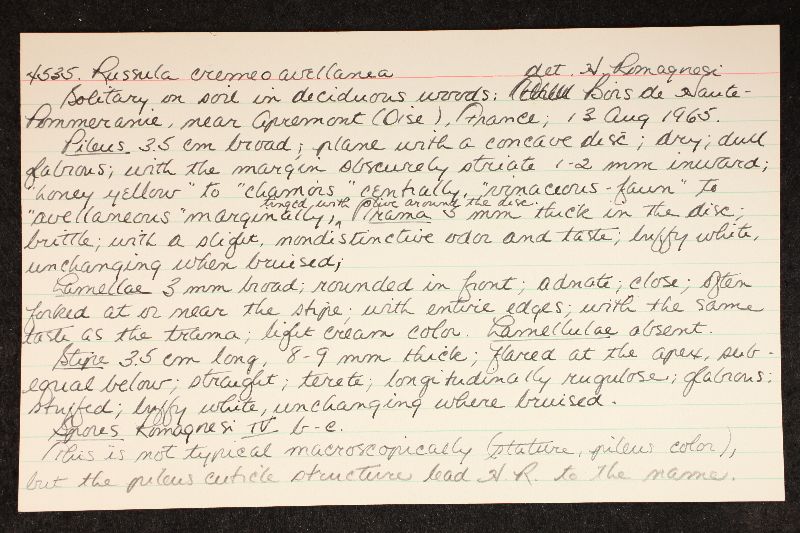 4535. Russula cremeo avellanea det. H. Romagnesi
Solitary on soil in deciduous woods; Bois de Haute-
Pommeraie, near Apremont (Oise), France; 13 Aug 1965.
Pileus 3.5 cm broad; plane with a concave disc; dry; dull
glabrous; with the margin obscurely striate 1-2 mm inward;
"honey yellow" to "chamois" centrally, "vinaceous-fawn" to
tinged with olive around the disc.
"avellaneous" marginally, Trama 3 mm thick in the disc;
brittle; with a slight, nondistinctive odor and taste; buffy white,
unchanging when bruised;
Lamellae 3 mm broad; rounded in front; adnate; close; often
forked at or near the stipe; with entire edges; with the same
taste as the trama; light cream color. Lamellulae absent.
Stipe 3.5 cm long, 8-9 mm thick; flared at the apex, sub-
equal below; straight; terete; longitudinally rugulose; glabrous;
stuffed; buffy white, unchanging where bruised.
Spores Romagnesi IV b-c.
This is not typical macroscopically (stature, pileus color),
but the pileus cuticle structure lead H. R. to the name.